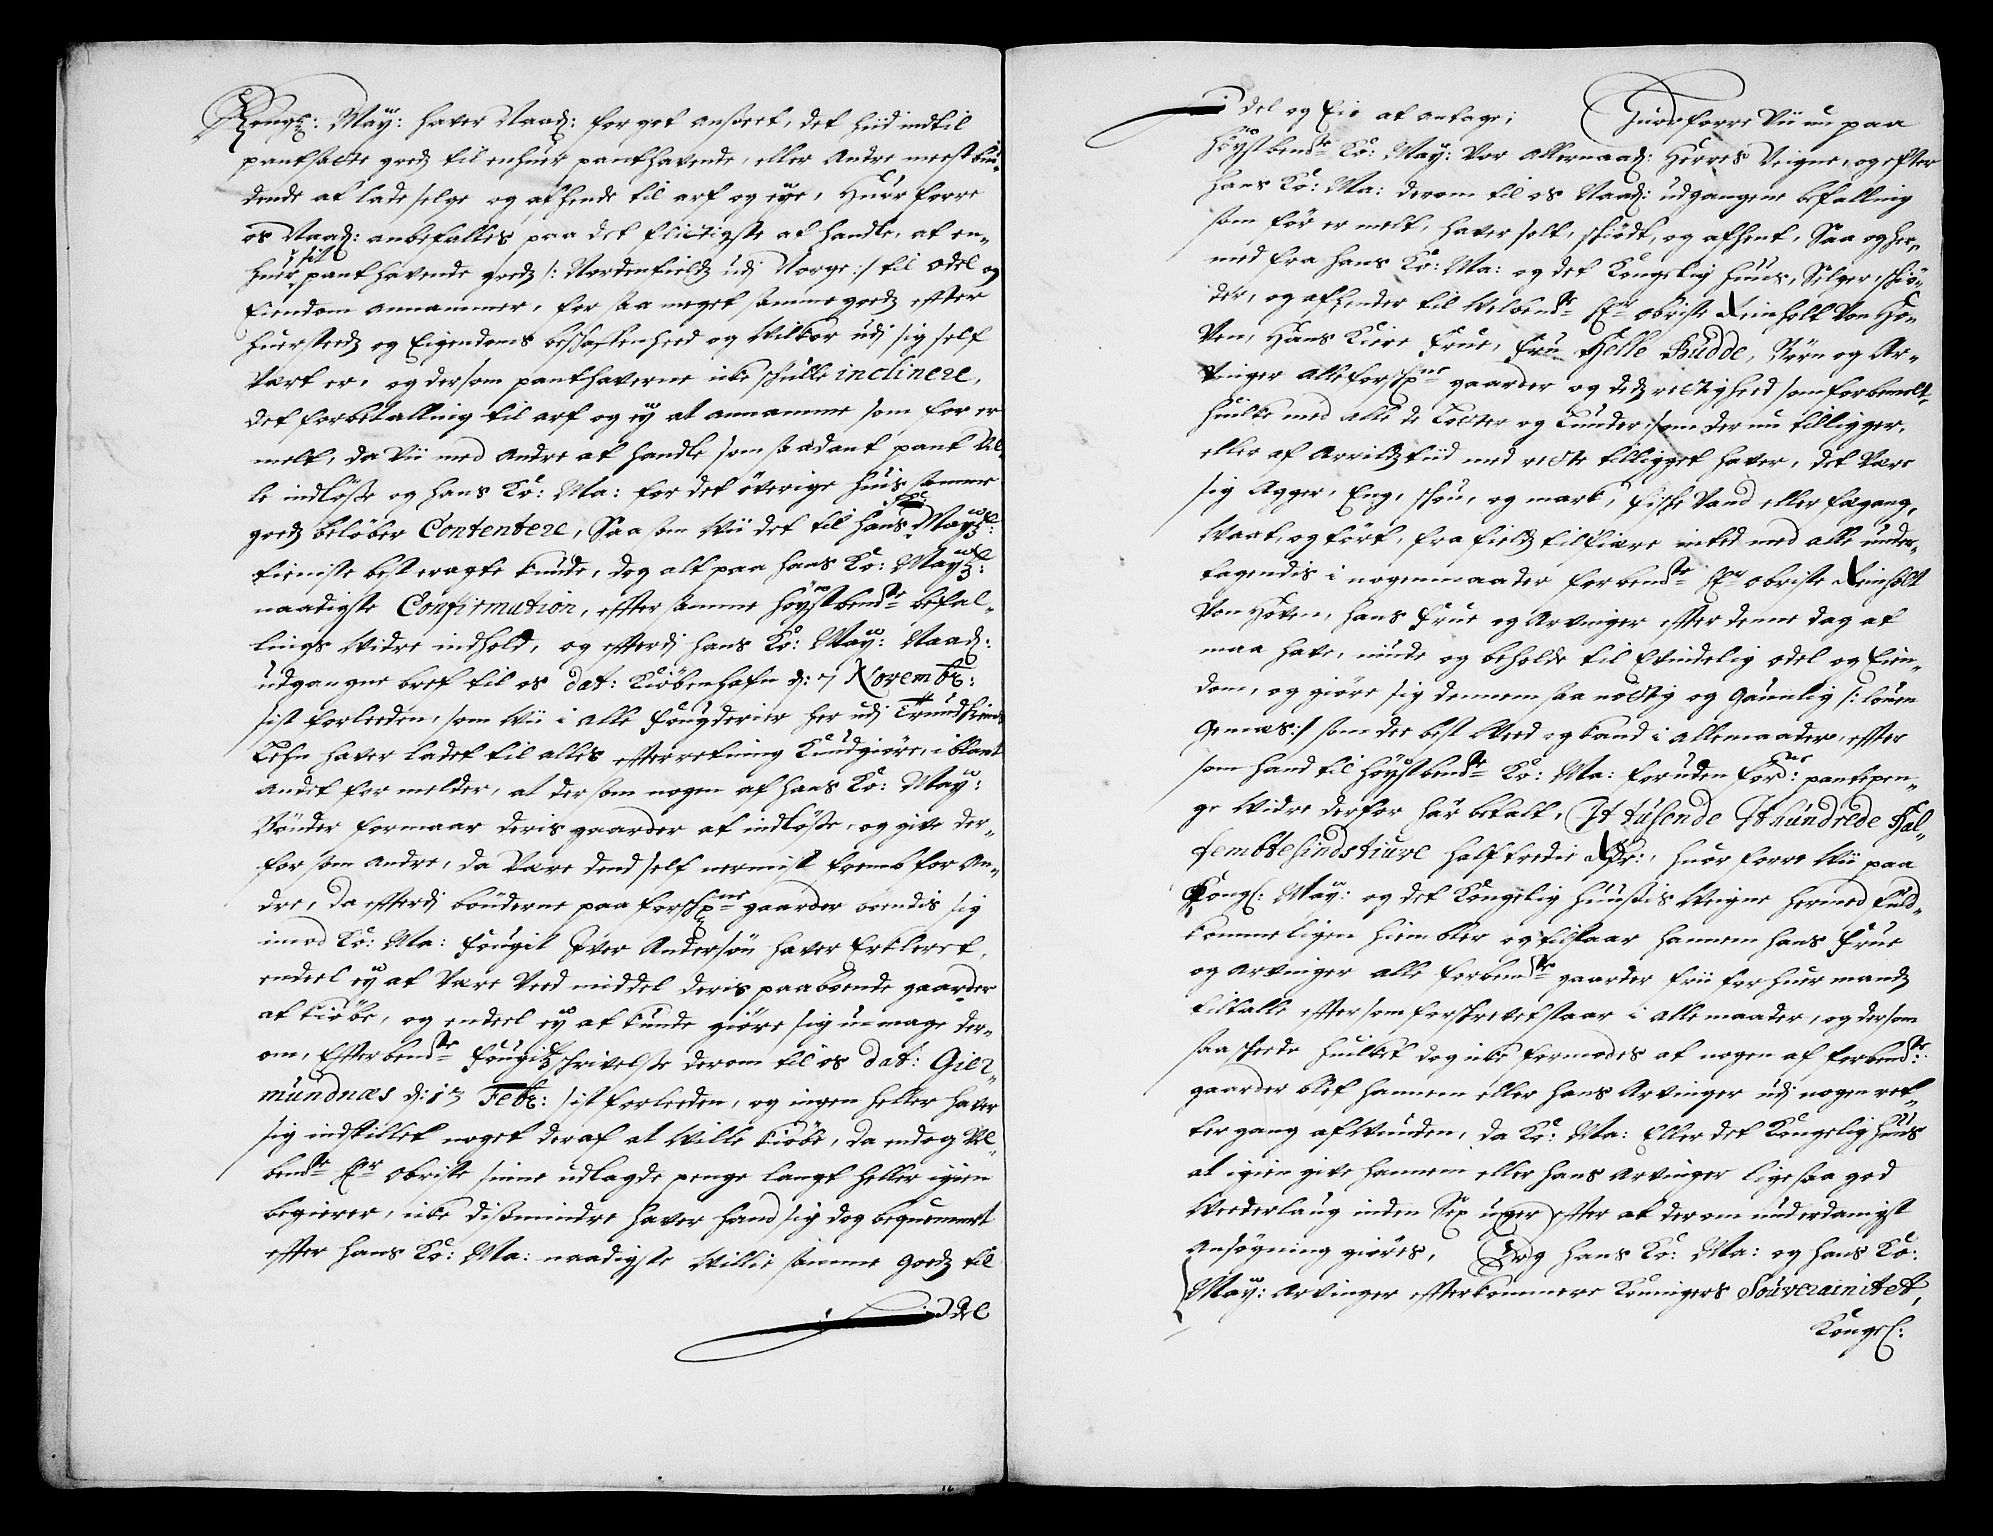 Kongl: May: haver Naad: for got ansseet, det hiid indtil
pantsatte godz til enhuer panthavende, eller andre meest biu-
dende at lade selge og afhende til arf og eye, Huor forre
os Naad: anbefalles paa det flittigste at handle, at en-
huer sit panthavende godz /: Nordenfieldz udj Norge :/ til odel og
Eiendom annammer, for saa meget samme godz effter
huersteedz og Eigendoms beskaffenheed og Wilkor udj sig self
Vært er, og dersom panthaverne icke skulle inclinere,
det forbetalling til arf og eÿ at annamme som for er
melt, da Vii med andre at handle som saadant pant Vil-
le indløsse og hans Ko: Ma: for det øverige huis samme
godz beløber Contentere, Saa som Wii det til hans May:
tieniste best eragte kunde, dog alt paa hans Ko: May:
naadigste Confirmation, effter samme høystbemte befal-
lings Widre indhold, og efftterdj hans Ko: May: Naad:
udgangne bref til os dat: Kiøbenhafn d: 7 Novembr:
sist forleeden, som Wii i alle fougderier her udj Trundhiems
Lehn haver ladet til alles effterretning Kundgiøre, iblant
andet formelder, at dersom nogen af hans Ko: May:
Bønder formaar deris gaarder at indløsse, og give der-
for som andre, da Være dend self nermist fremb for An-
dre, Da effterdj bønderne paa forschrne gaarder boendis sig
imod Ko: Ma: fougit Iver Andersøn haver Erkleret,
endeel eÿ at Være Ved middel deris paaboende gaarder
at kiøbe, og endeel eÿ at kunde giøre sig u-mage der-
om, Effter bemte fougitz schrivelsse derom til os dat: Gier-
mundnæs d: 17 Febr: sist forleeden, og ingen heller haver
sig indstillet noget deraf at Wille kiøbe, da endog Vel-
bemte Hr Obriste sinne udlagde penge langt heller igien
begierer, icke dissmindre haver hand sig dog bequemmet
effter hans Ko: Ma: naadigste Willie samme godz til
odel
odel og Eie at antage; Huorforre Vii nu paa
Høystbemte Ko: May: Vor allernaad: Herres Veigne, og effter
hans Ko: Ma: derom til os Naad: udgangene befalling
som før er melt, haver solt, skiødt, og afhent, Saa og her-
med fra hans Ko: Ma: og det Kongelig huus, Selger, skiø-
der, og afhender til Welbemte Hr Obriste Reinholt Von Ho-
Ven, Hans Kiere Frue, Fru Helle Rudde, Børn og Ar-
vinger alle forschrne gaarder og dedz rettighed som forbemelt,
huilke med alle de Lotter og Lunder som der nu tilligger,
eller af Arrildz tiid med rette tilligget haver, det Være
sig Agger, Eng, schou, og mark, fische Vand eller fægang,
Waat, og tørt, fra fieldz til fiære inted med alle under-
tagendis i nogenmaader forbemte Hr Obriste Reinholt
Von Hoven, hans Frue og Arvinger effter denne dag at
maa have, nyude og beholde til Evindelig odel og Eien-
dom, og giøre sig dennem saa nøttig og gaunlig /: louen
gemæs :/ som dee best Veed og kand i allemaader, effter
som hand til høystbemte Ko: Ma: foruden forne: pantepen-
ge Widre derfor har betalt, It tusende It hundrede Hal-
fembtesindstiuve halftredie Rdr:, huor forre Wii paa
Kongl: May: og det Kongelig huussis Weigne hermed fuld-
kommeligen hiembler og tilstaar hannem hans Frue
og Arvinger alle forbemte gaarder frii for huer mandz
tiltalle effter som forschrevet staar i alle maader, og dersom
saa skeede huilket dog icke formodes at nogen af forbemte:
gaarder blef hannem eller hans Arvinger udj nogen ret-
tergang afWunden, da Ko: Ma: Eller det Kongelig huus
at igien give hannem eller hans Arvinger ligesaa god
Wederlaug inden Sex uger effter at derom underdanigst
Ansøgning giøres, Dog hans Ko: Ma: og hans Ko:
May: Arvinger effterkommere Konningers Souverainitet,
Kongel: